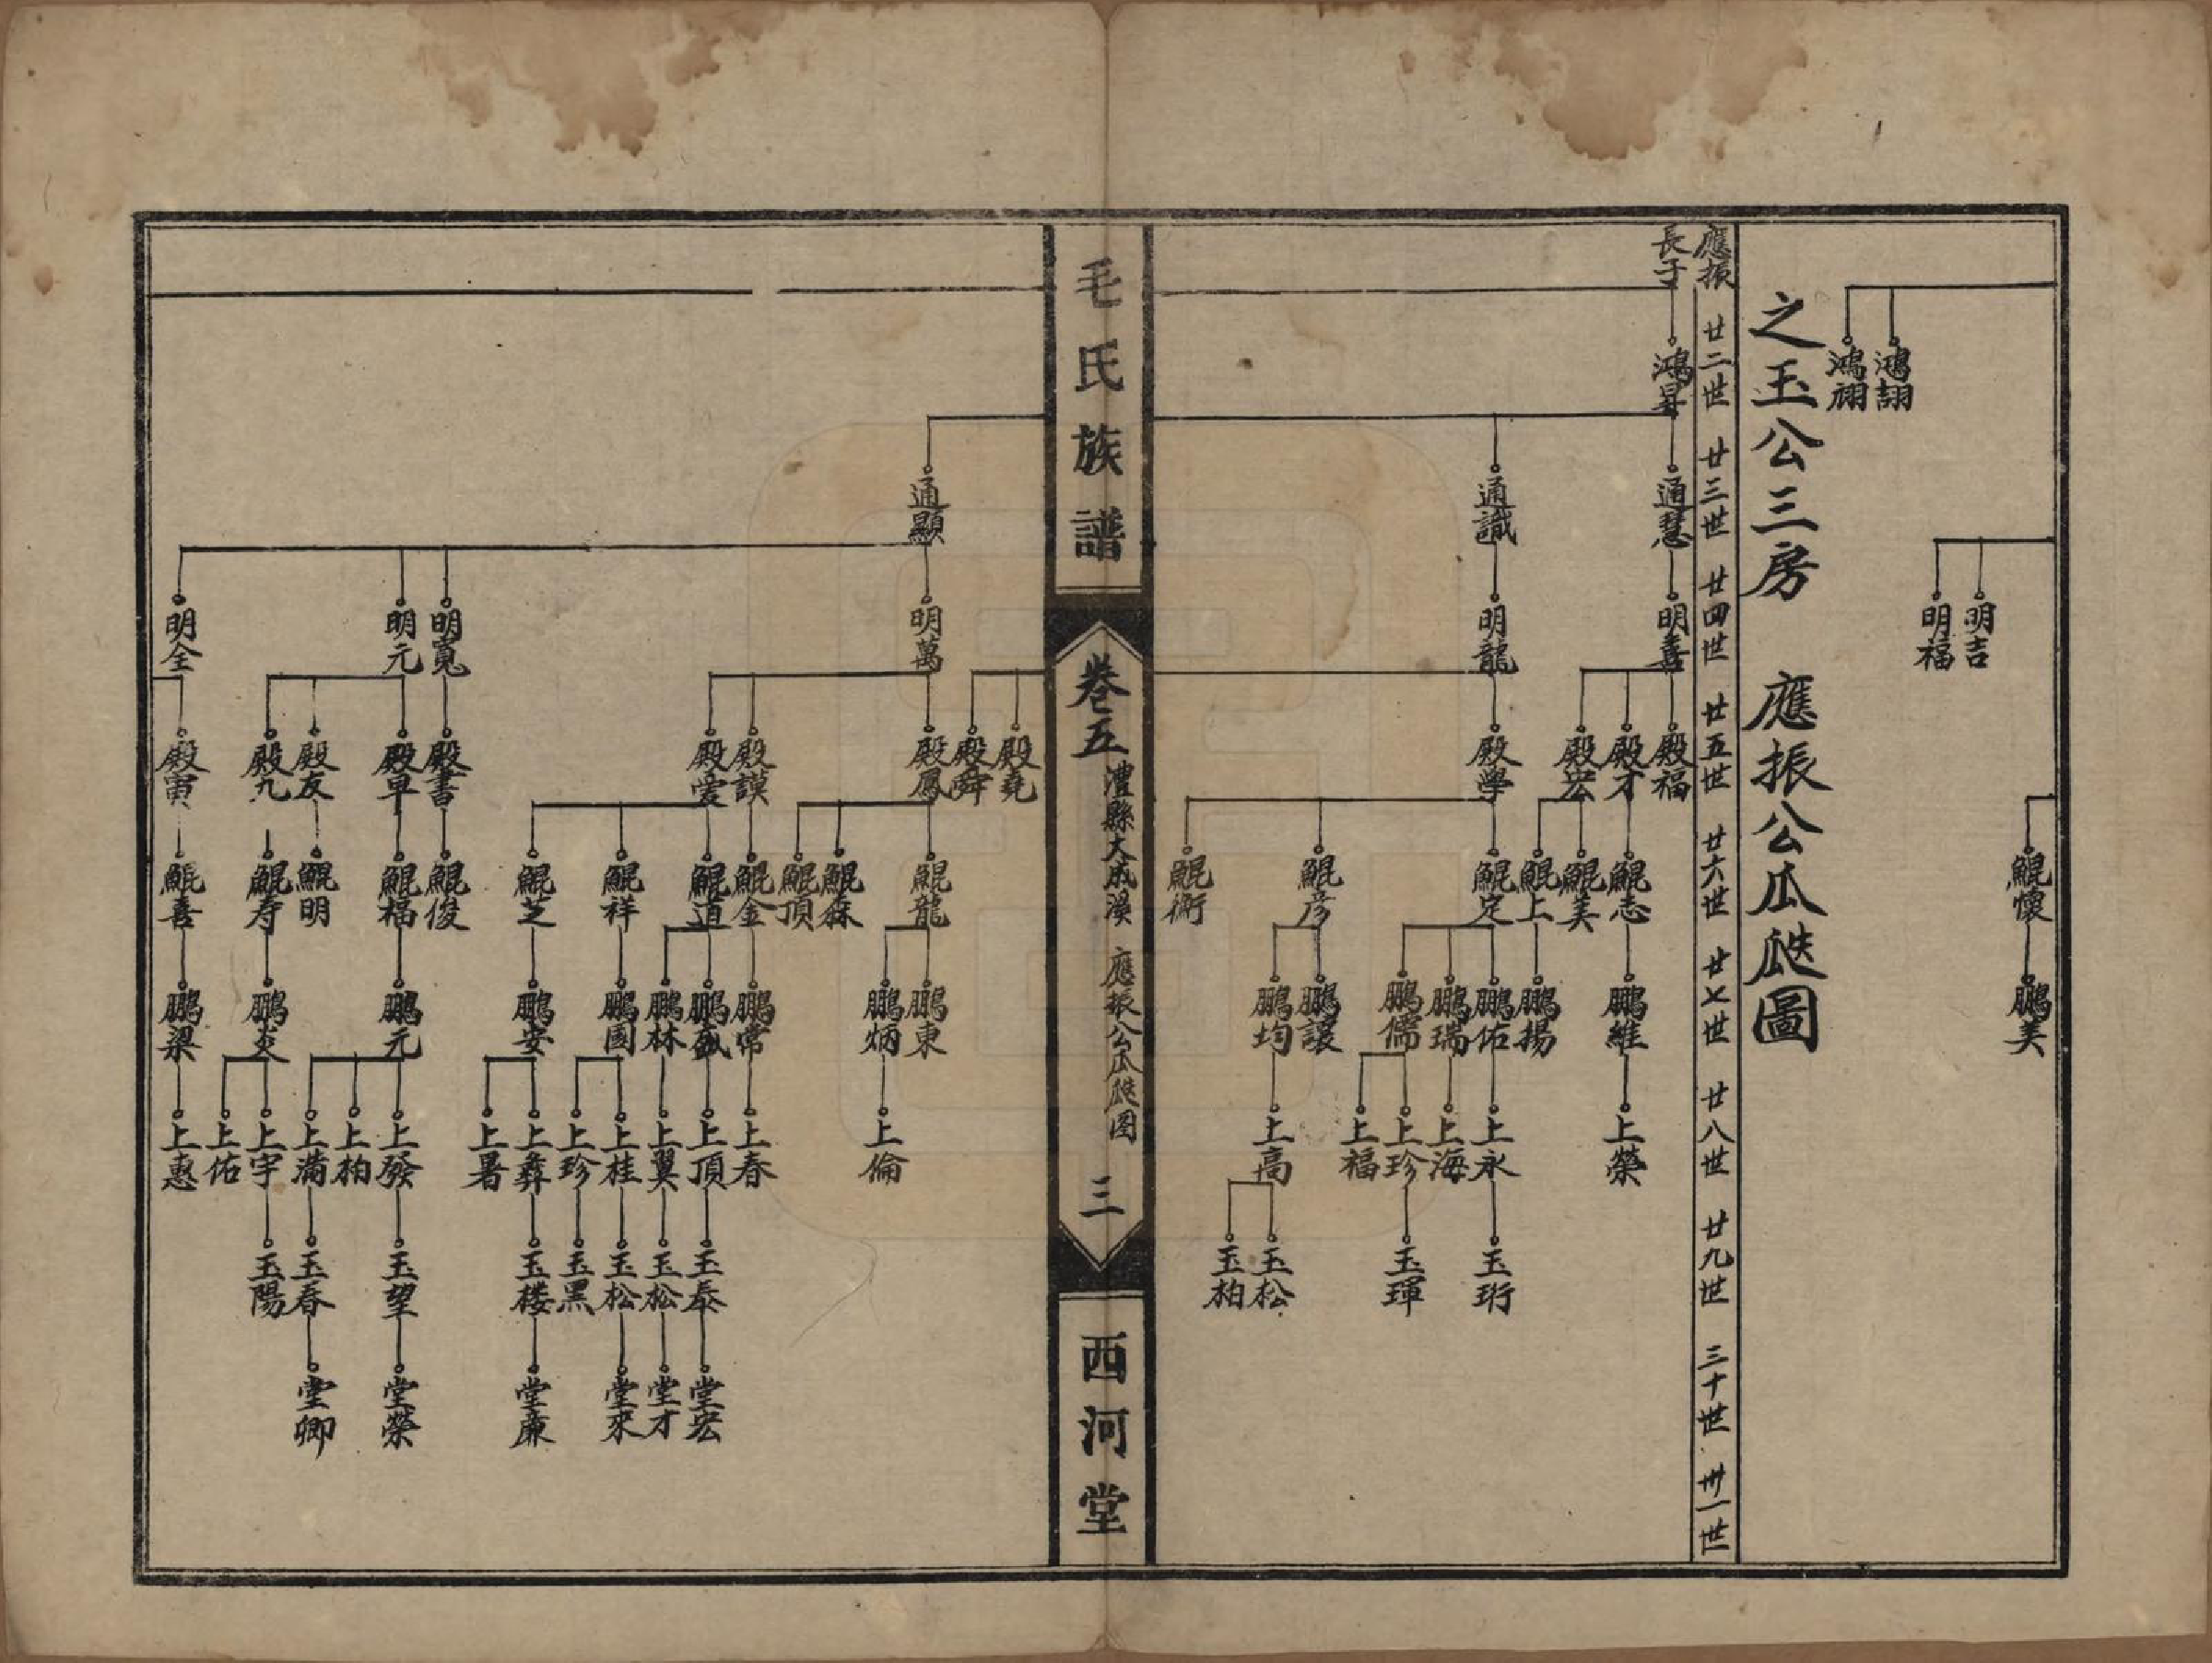 鴻詡
鴻祤
明吉
明福
鯤懷
鵬美
之玉公三房　應振公瓜瓞圖
應振
長子
廿二世
廿三世
廿四世
廿五世
廿六世
廿七世
廿八世
廿九世
三十世
卅一世
鴻昇
通慧
通識
明喜
明龍
殿福
殿才
殿宏
殿學
鯤志
鯤美
鯤上
鯤定
鯤彥
鯤衡
鵬維
鵬揚
鵬佑
鵬瑞
鵬儒
鵬讓
鵬均
上榮
上永
上海
上珍
上福
上高
玉珩
玉琿
玉松
玉柏
毛氏族譜
卷五
澧縣大成溪　應振公瓜瓞图
三
西河堂
通顯
明萬
明寬
明元
明全
殿堯
殿舜
殿鳳
殿謨
殿愛
殿書
殿軍
殿友
殿九
殿寅
鯤龍
鯤森
鯤頂
鯤金
鯤道
鯤祥
鯤芝
鯤俊
鯤福
鯤明
鯤寿
鯤喜
鵬東
鵬炳
鵬常
鵬盛
鵬林
鵬國
鵬安
鵬元
鵬炎
鵬梁
上倫
上春
上頂
上翼
上桂
上珍
上彝
上暑
上發
上柏
上滿
上宇
上佑
上惠
玉泰
玉松
玉松
玉黑
玉楼
玉望
玉春
玉陽
堂宏
堂才
堂來
堂廉
堂榮
堂卿